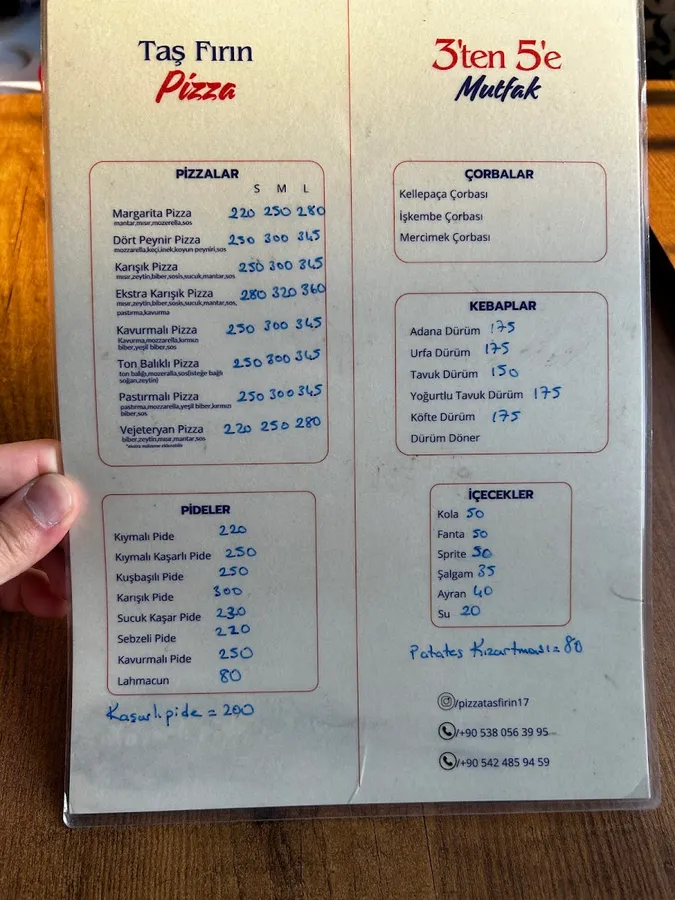 Taş Fırın
Pizza
PİZZALAR
S M L
Margarita Pizza 220 250 280
mantar,mısır,mozerella,sos
Dört Peynir Pizza 250 300 345
mozzarella,keçi,inek,koyun peyniri,sos
Karışık Pizza 250 300 345
mısır,zeytin,biber,sosis,sucuk,mantar,sos
Ekstra Karışık Pizza 280 320 360
mısır,zeytin,biber,sosis,sucuk,mantar,sos,
pastırma,kavurma
Kavurmalı Pizza 250 300 345
Kavurma,mozzarella,kırmızı
biber,yeşil biber,sos
Ton Balıklı Pizza 250 300 345
ton balığı,mozeralla,sos(isteğe bağlı
soğan,zeytin)
Pastırmalı Pizza 250 300 345
pastırma,mozzarella,yeşil biber,kırmızı
biber,sos
Vejeteryan Pizza 220 250 280
biber,zeytin,mısır,mantar,sos
PİDELER
Kıymalı Pide 220
Kıymalı Kaşarlı Pide 250
Kuşbaşılı Pide 250
Karışık Pide 300
Sucuk Kaşar Pide 230
Sebzeli Pide 220
Kavurmalı Pide 250
Lahmacun 80
Kaşarlı pide = 200
3'ten 5'e
Mutfak
ÇORBALAR
Kellepaça Çorbası
İşkembe Çorbası
Mercimek Çorbası
KEBAPLAR
Adana Dürüm 175
Urfa Dürüm 175
Tavuk Dürüm 150
Yoğurtlu Tavuk Dürüm 175
Köfte Dürüm 175
Dürüm Döner
İÇECEKLER
Kola 50
Fanta 50
Sprite 50
Şalgam 35
Ayran 40
Su 20
Patates Kızartması = 80
/pizzatasfirin17
/+90 538 056 39 95
/+90 542 485 94 59